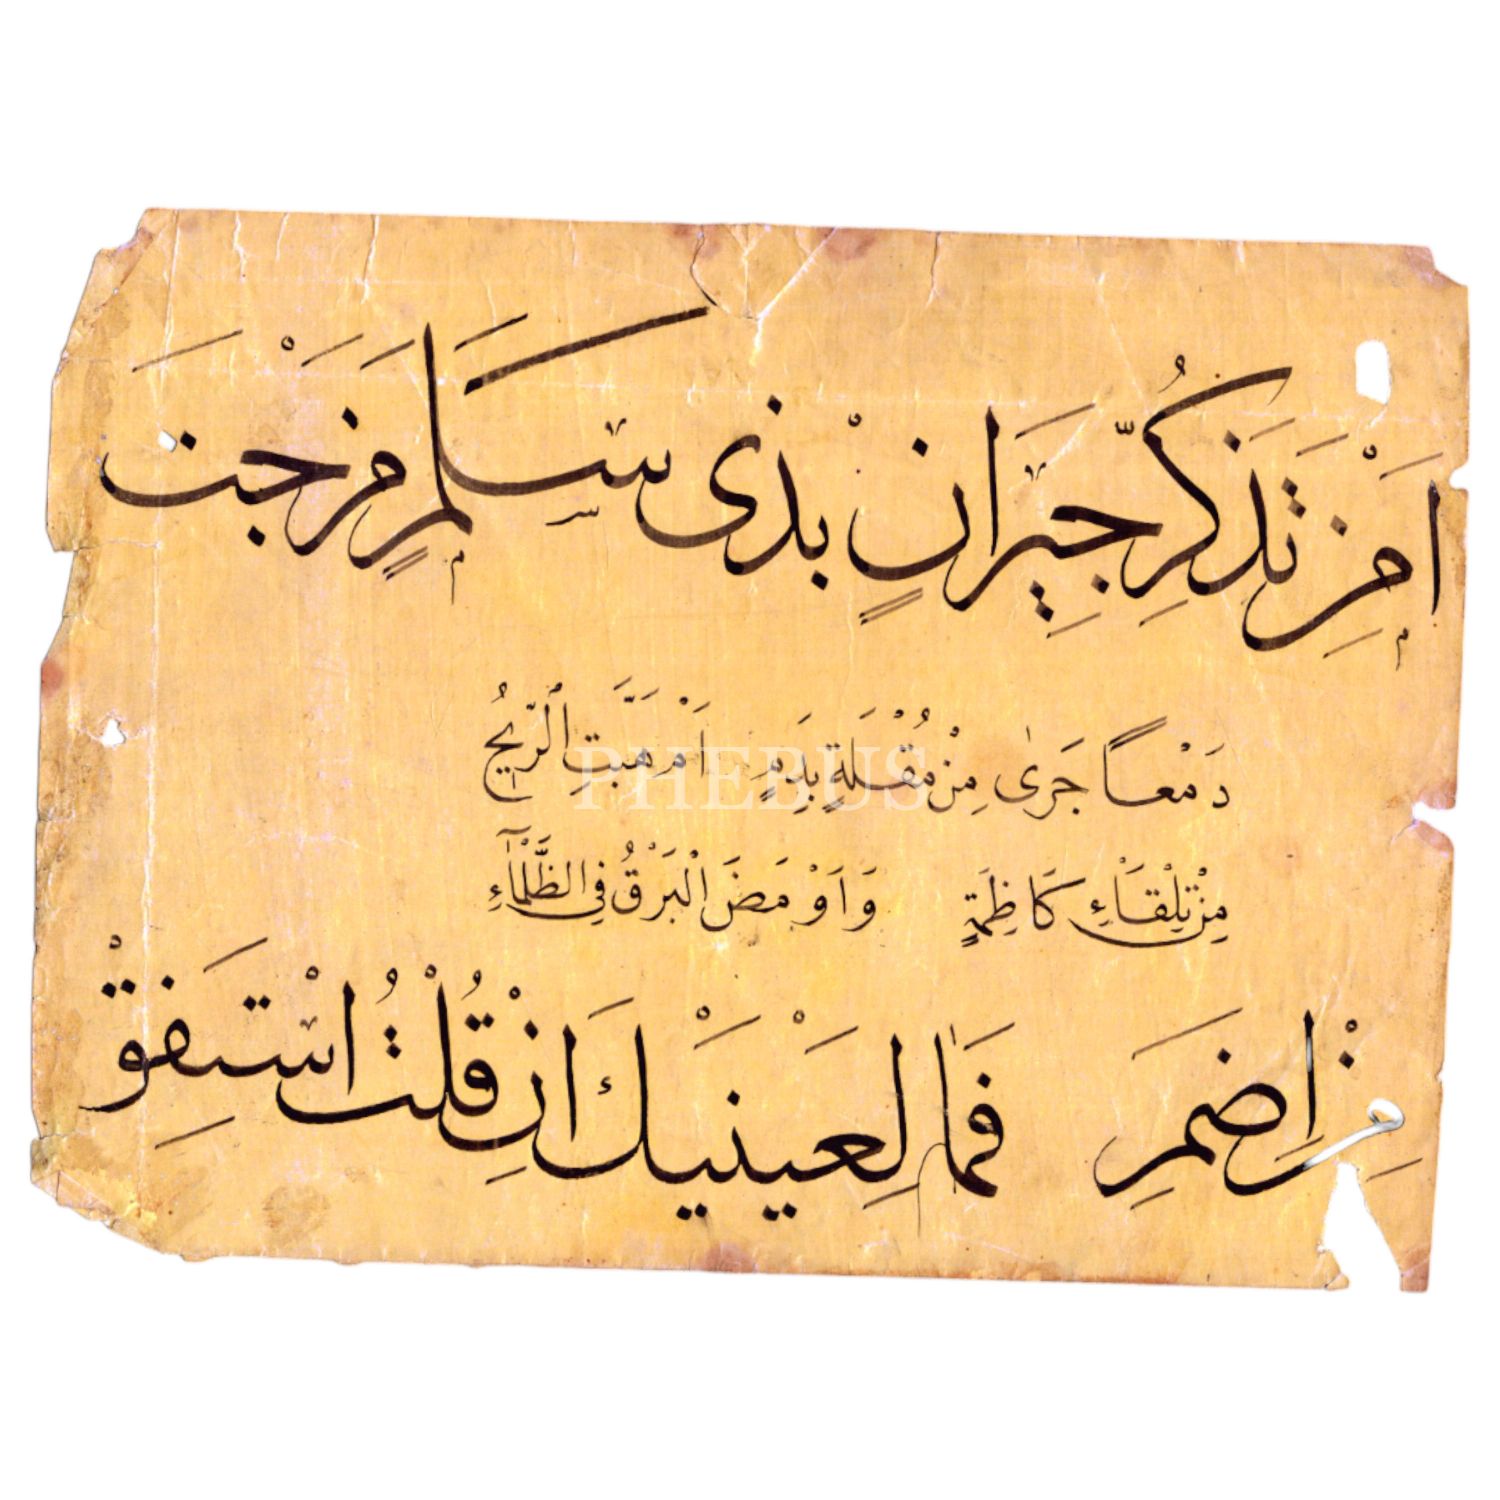 اَمِنْ تَذَكُّرِ جِيَرانٍ بِذى سَلَمٍ مَزَجْتَ
دَمْعاً جَرٰى مِنْ مُقْلَةٍ بِدَمٍ اَمْ هَبَّتِ الرّيحُ
مِنْ تِلْقَاءِ كَاظِمَةٍ وَاَوْمَضَ الْبَرْقُ فِى الظَّلْمَآءِ
مِنْ اِضَمِ فَمَا لِعَيْنَيْكَ اِنْ قُلْتُ اسْتَفِقْ
PHEBUS